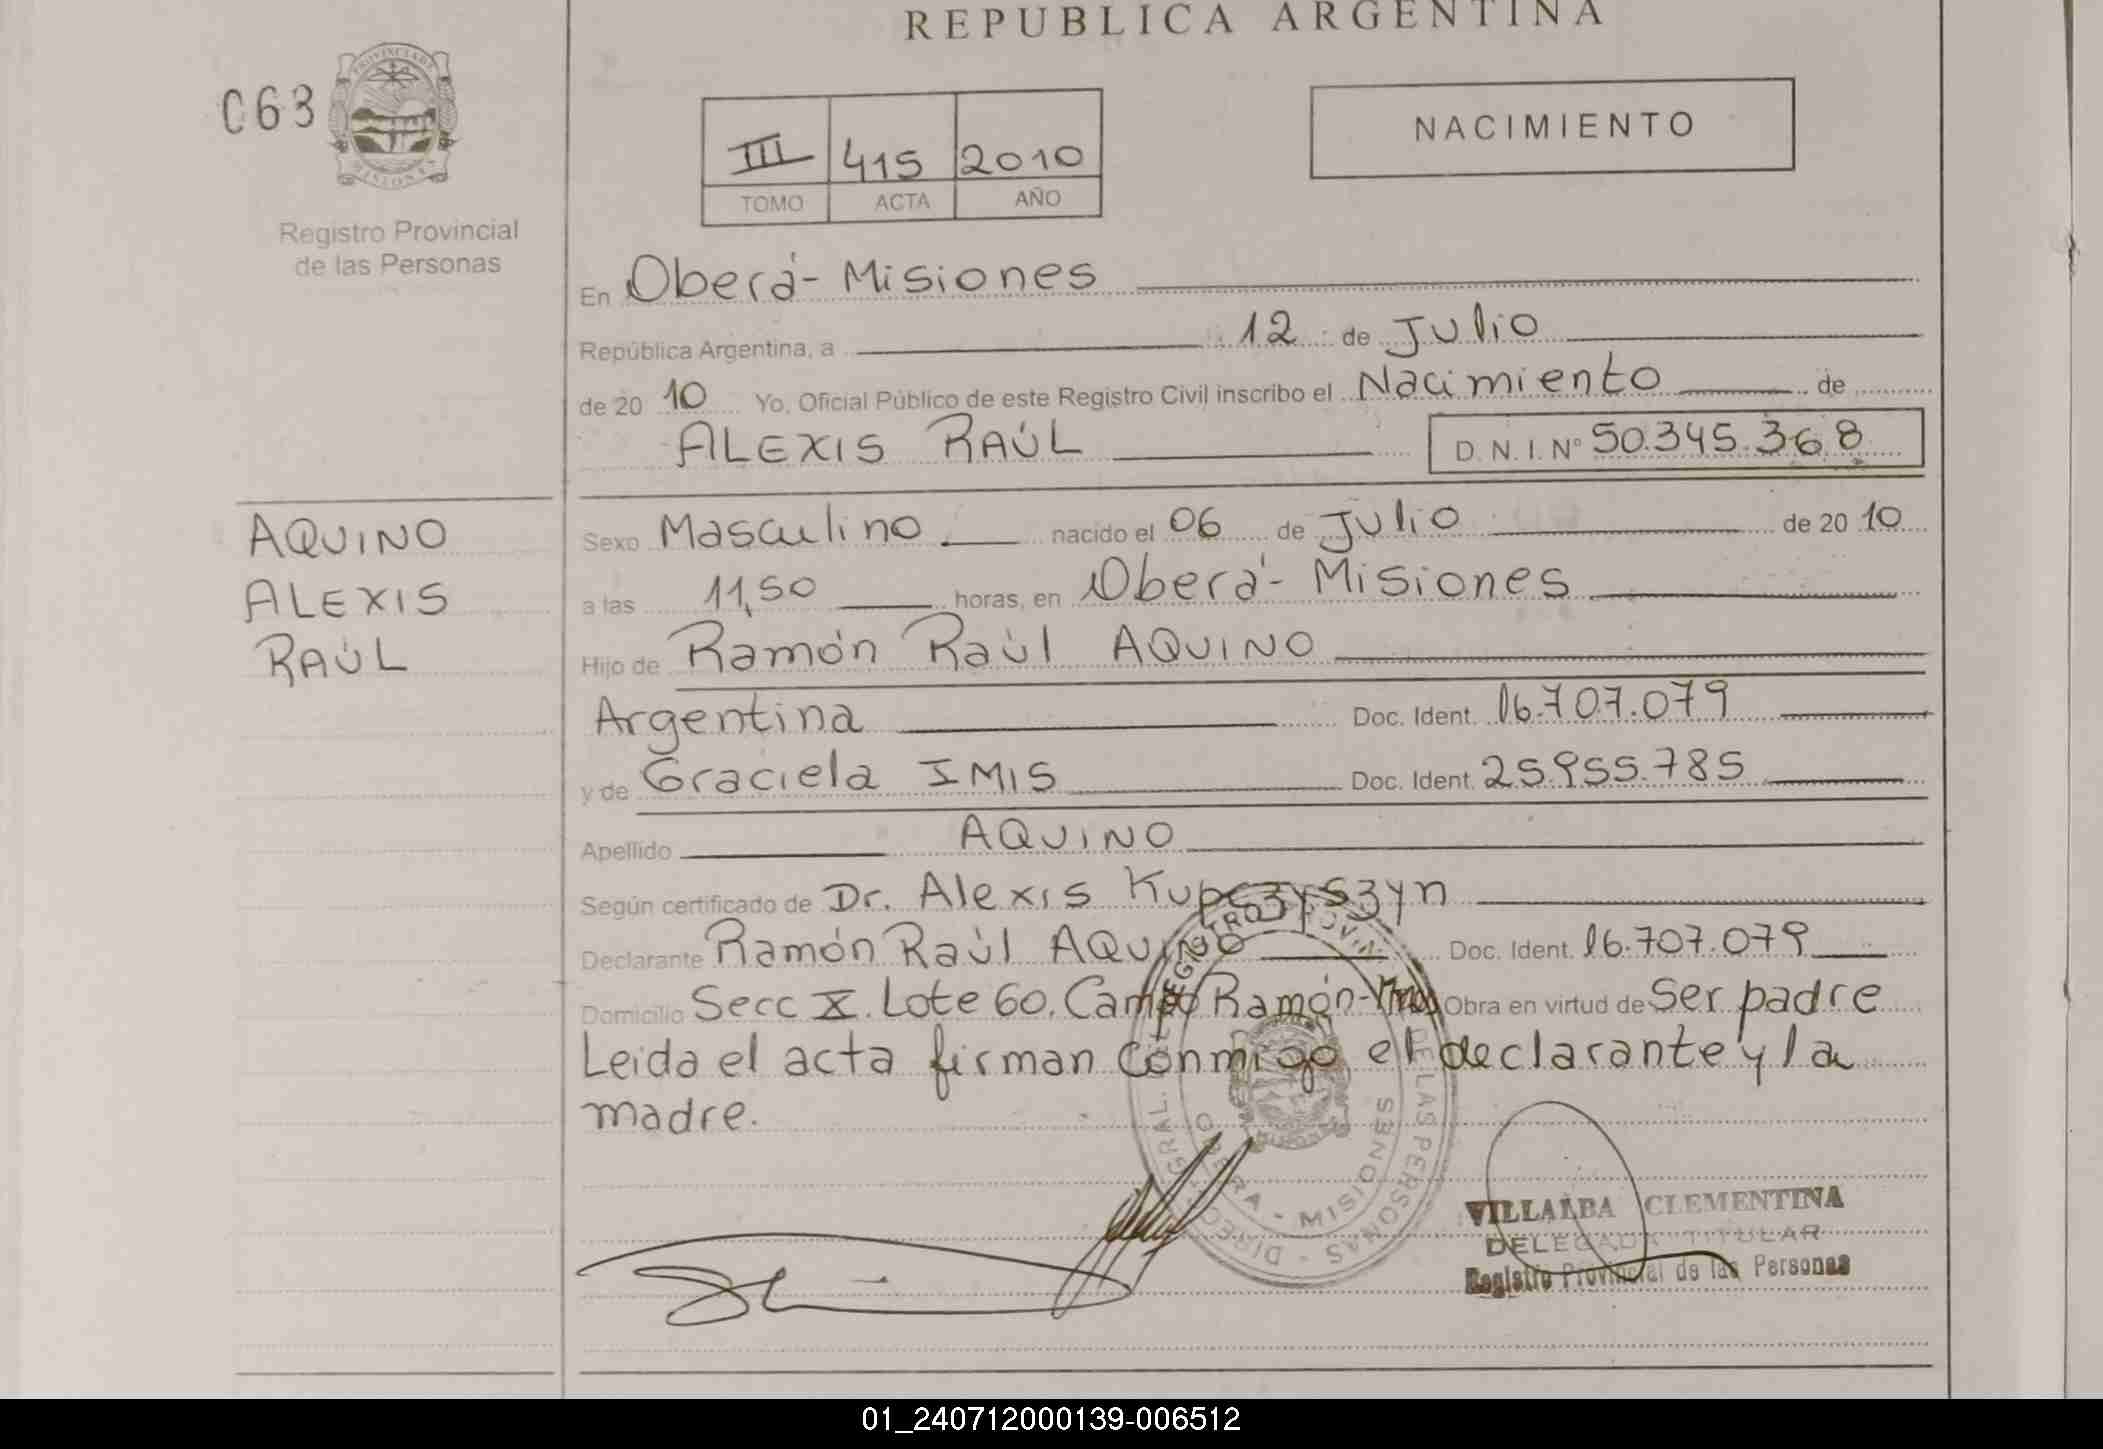 REPUBLICA ARGENTINA
063
PROVINCIA DE
MISIONES
Registro Provincial
de las Personas
III 415 2010
TOMO ACTA AÑO
NACIMIENTO
En Oberá - Misiones
República Argentina, a 12 de Julio
de 20 10 Yo, Oficial Público de este Registro Civil inscribo el Nacimiento de
ALEXIS RAÚL D.N.I. Nº 50.345.368
AQUINO
ALEXIS
RAÚL
Sexo Masculino nacido el 06 de Julio de 20 10
a las 11,50 horas, en Oberá - Misiones
Hijo de Ramón Raúl AQUINO
Argentina Doc. Ident. 16.707.079
y de Graciela IMIS Doc. Ident. 25.955.785
Apellido AQUINO
Según certificado de Dr. Alexis Kupczyszyn
Declarante Ramón Raúl AQUINO Doc. Ident. 16.707.079
Domicilio Secc X. Lote 60. Campo Ramón - Obra en virtud de Ser padre
Leida el acta firman conmigo el declarante y la
madre.
REGISTRO PROVIN DE LAS PERSONAS - DIREC GRAL.
OBERA - MISIONES
VILLALBA CLEMENTINA
DELEGADA TITULAR
Registro Provincial de las Personas
01_240712000139-006512